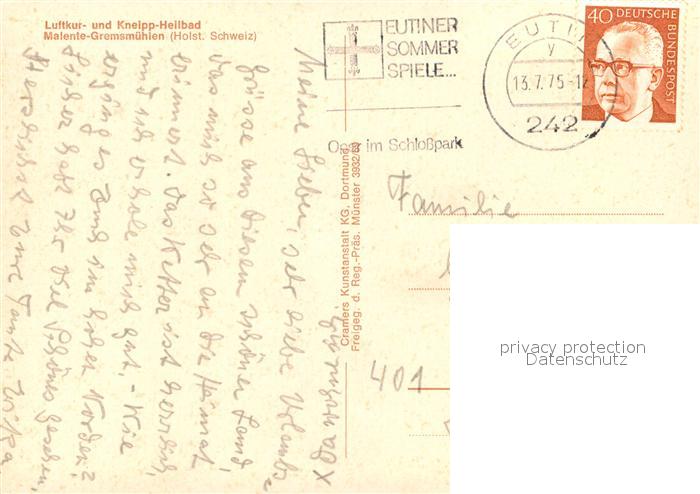 Luftkur- und Kneipp-Heilbad
Malente-Gremsmühlen (Holst. Schweiz)
EUTINER
SOMMER
SPIELE...
Oper im Schloßpark
EUTIN
y
13.7.75-12
242
40 DEUTSCHE
BUNDESPOST
Meine Lieben, sehr liebe Urlaubs-
grüsse aus diesem schönen Land,
das mich so sehr an die Heimat
erinnert. Das Wetter ist herrlich,
und ich erhole mich gut, - Wie
erging es Euch im hohen Norden?
Sicher habt Ihr viel Schönes gesehen,
Herzlichst Eure Tante
Cramers Kunstanstalt KG, Dortmund
Freigeg. d. Reg.-Präs. Münster 3932/63
Familie
401
privacy protection
Datenschutz